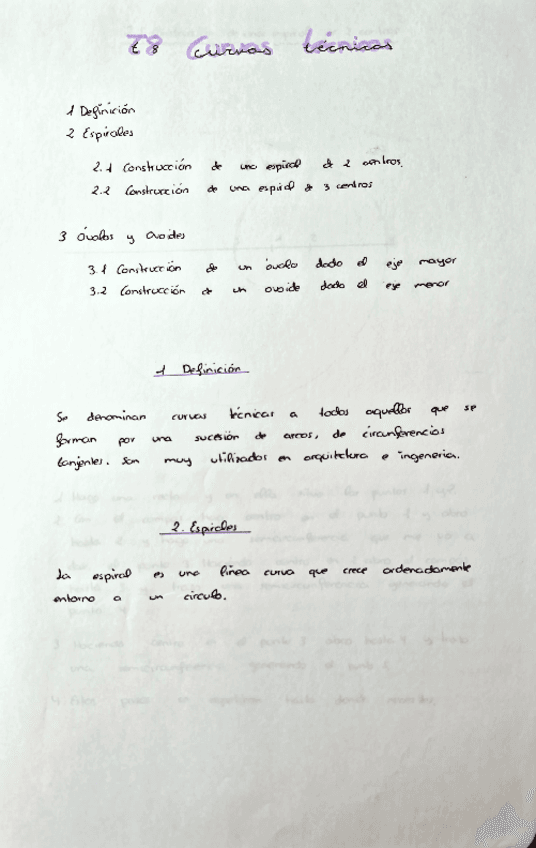 T8 Curvas técnicas
1 Definición
2 Espirales
2.1 Construcción de una espiral de 2 centros.
2.2 Construcción de una espiral de 3 centros
3 Óvalos y Ovoides
3.1 Construcción de un óvalo dado el eje mayor
3.2 Construcción de un ovoide dado el eje menor
1 Definición
Se denominan curvas técnicas a todas aquellas que se
forman por una sucesión de arcos, de circunferencias
tanjentes. Son muy utilizadas en arquitectura e ingeneria.
2. Espirales
La espiral es una línea curva que crece ordenadamente
entorno a un circulo.